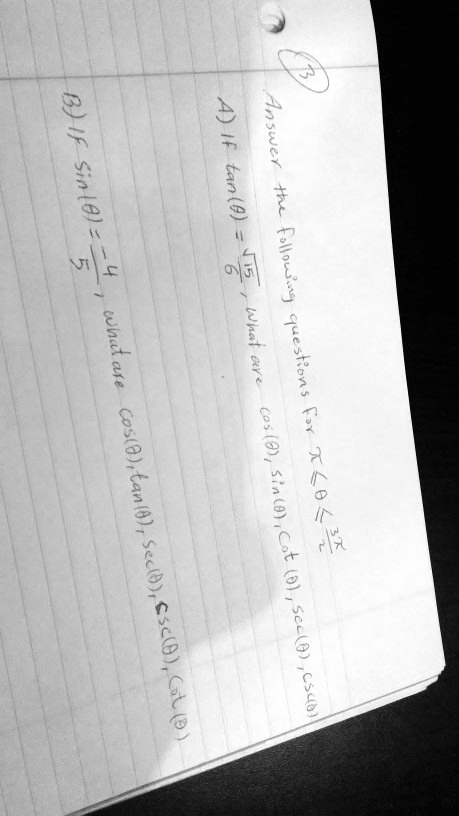 3
Answer the following questions for π ≤ θ ≤ 3π/2
A) If tan(θ) = √15/6, what are cos(θ), sin(θ), cot(θ), sec(θ), csc(θ)
B) If sin(θ) = -4/5, what are cos(θ), tan(θ), sec(θ), csc(θ), cot(θ)